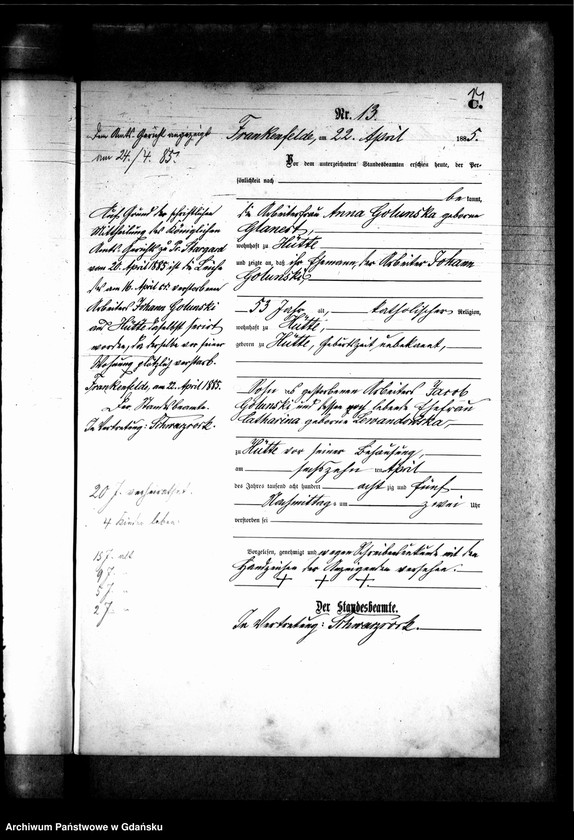 C.
Nr. 13.
Frankenfelde, am 22. April 1885.
Vor dem unterzeichneten Standesbeamten erschien heute, der Per-
sönlichkeit nach
be kannt,
die Arbeiterfrau Anna Golunska geborne
Glanert,
wohnhaft zu Hütte
und zeigte an, daß ihr Ehemann, der Arbeiter Johann
Golunski
53 Jahr alt, katholischer Religion,
wohnhaft zu Hütte,
geboren zu Hütte, Geburtszeit unbekannt,
Sohn des gestorbenen Arbeiters Jacob
Golunski und dessen lebende Ehefrau
Catharina geborne Lewandowska
zu Hütte vor seiner Behausung,
am sechszehn ten April
des Jahres tausend acht hundert acht zig und fünf
Nachmittag um zwei Uhr
verstorben sei
Vorgelesen, genehmigt und wegen Schreibensunkunde mit den
Handzeichen der Anzeigenden versehen.
+ + +
Der Standesbeamte.
In Vertretung: Schwazrock.
Dem Amts-Gericht angezeigt
am 24./4. 85.
Auf Grund der schriftlichen
Mittheilung des Königlichen
Amts-Gerichts zu Pr. Stargard
vom 20. April 1885 ist die Leiche
des am 16. April cr. verstorbenen
Arbeiters Johann Golunski
aus Hütte daselbst secirt
worden, da derselbe vor seiner
Wohnung plötzlich verstarb.
Frankenfelde, am 22. April 1885.
Der Standesbeamte.
In Vertretung: Schwazrock.
20 J. verheirathet.
4 Kinder leben
15 J. alt
9 J.
5 J.
2 J.
Archiwum Państwowe w Gdańsku